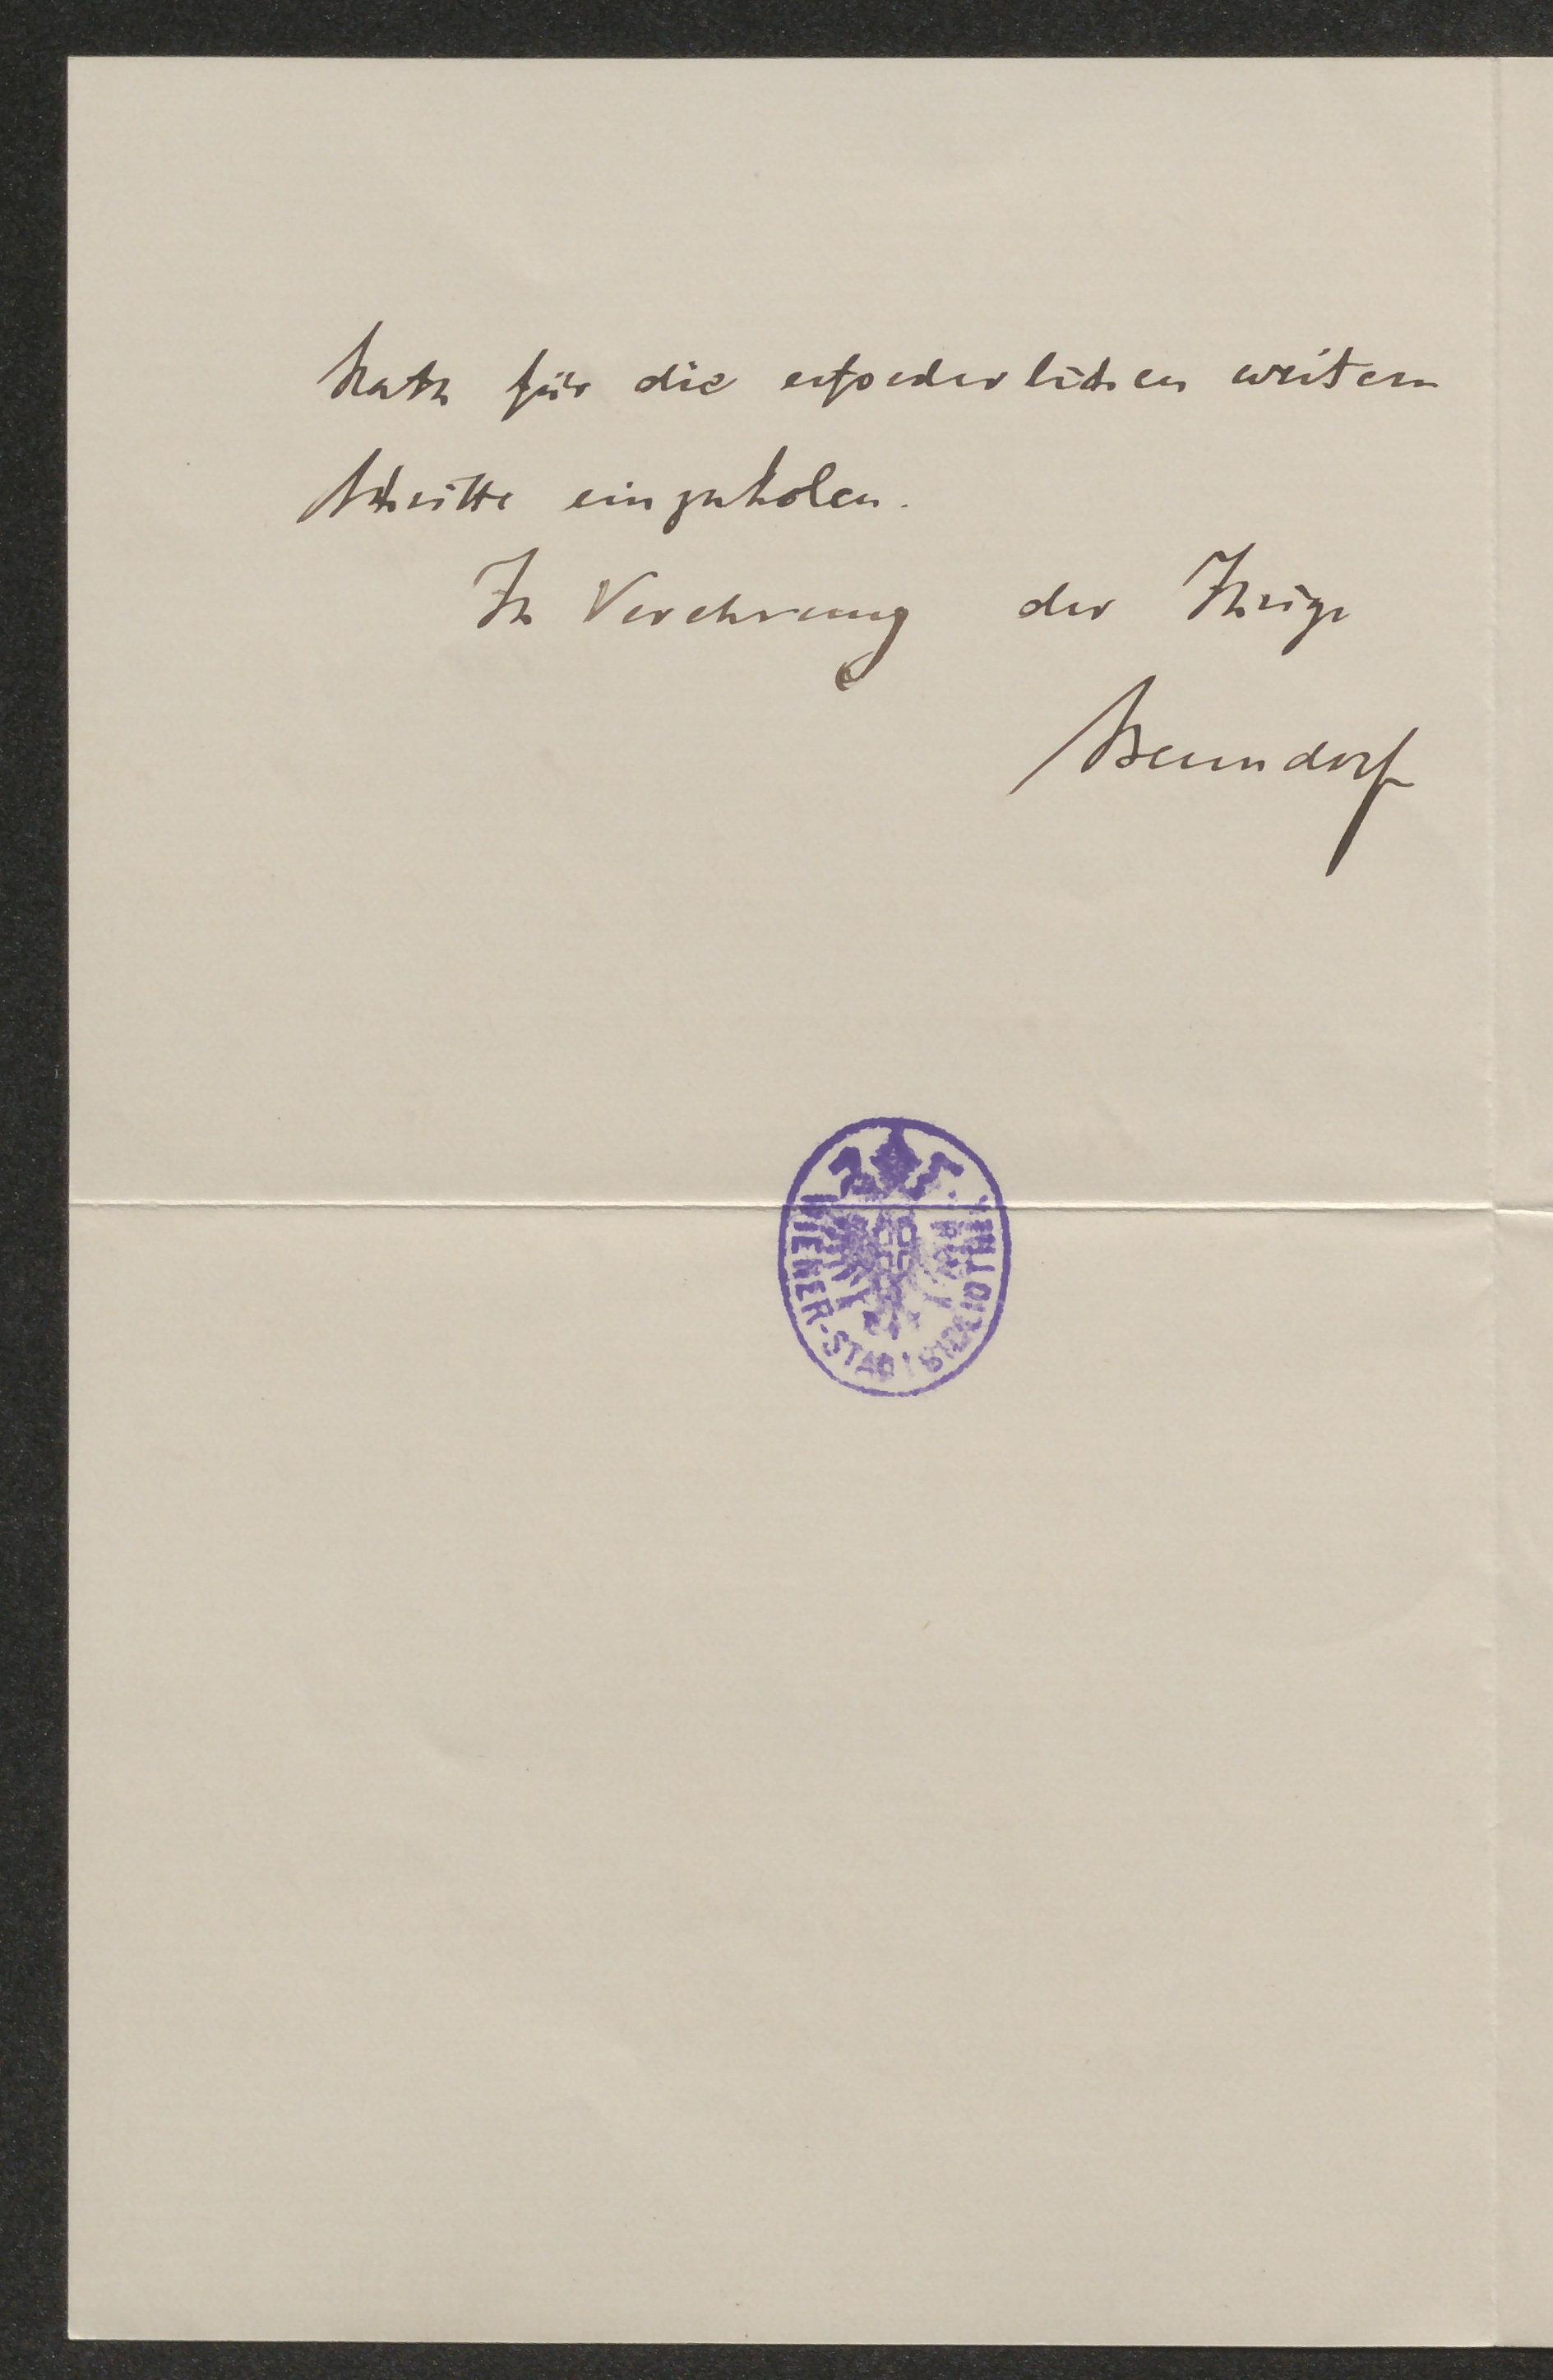 Rath für die erforderlichen weitern
Schritte einzuholen.
In Verehrung der Ihrige
Benndorf
WIENER-STADTBIBLIOTHEK